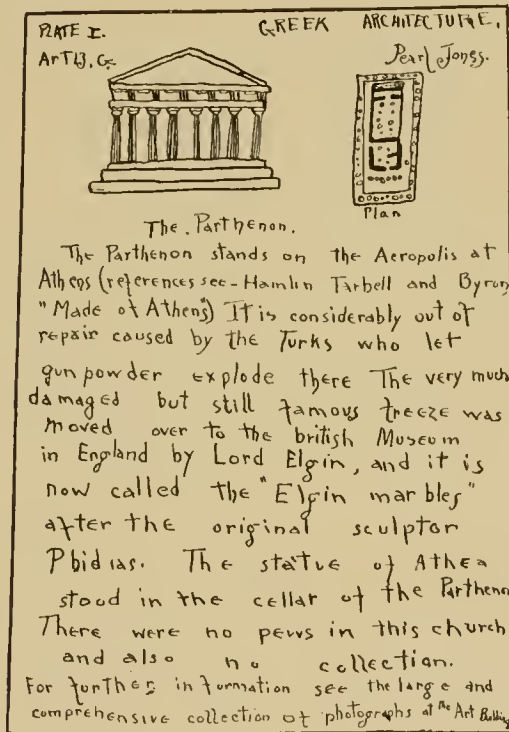 PLATE I. GREEK ARCHITECTURE.
ArT 13, G. Pearl Jones.
Plan
The Parthenon.
The Parthenon stands on the Acropolis at
Athens (references see - Hamlin Tarbell and Byron
"Made of Athens") It is considerably out of
repair caused by the Turks who let
gunpowder explode there The very much
damaged but still famous freeze was
moved over to the british Museum
in England by Lord Elgin, and it is
now called the "Elgin marbles"
after the original sculptor
Phidias. The statue of Athea
stood in the cellar of the Parthenon
There were no pews in this church
and also no collection.
For further information see the large and
comprehensive collection of photographs at the Art Building